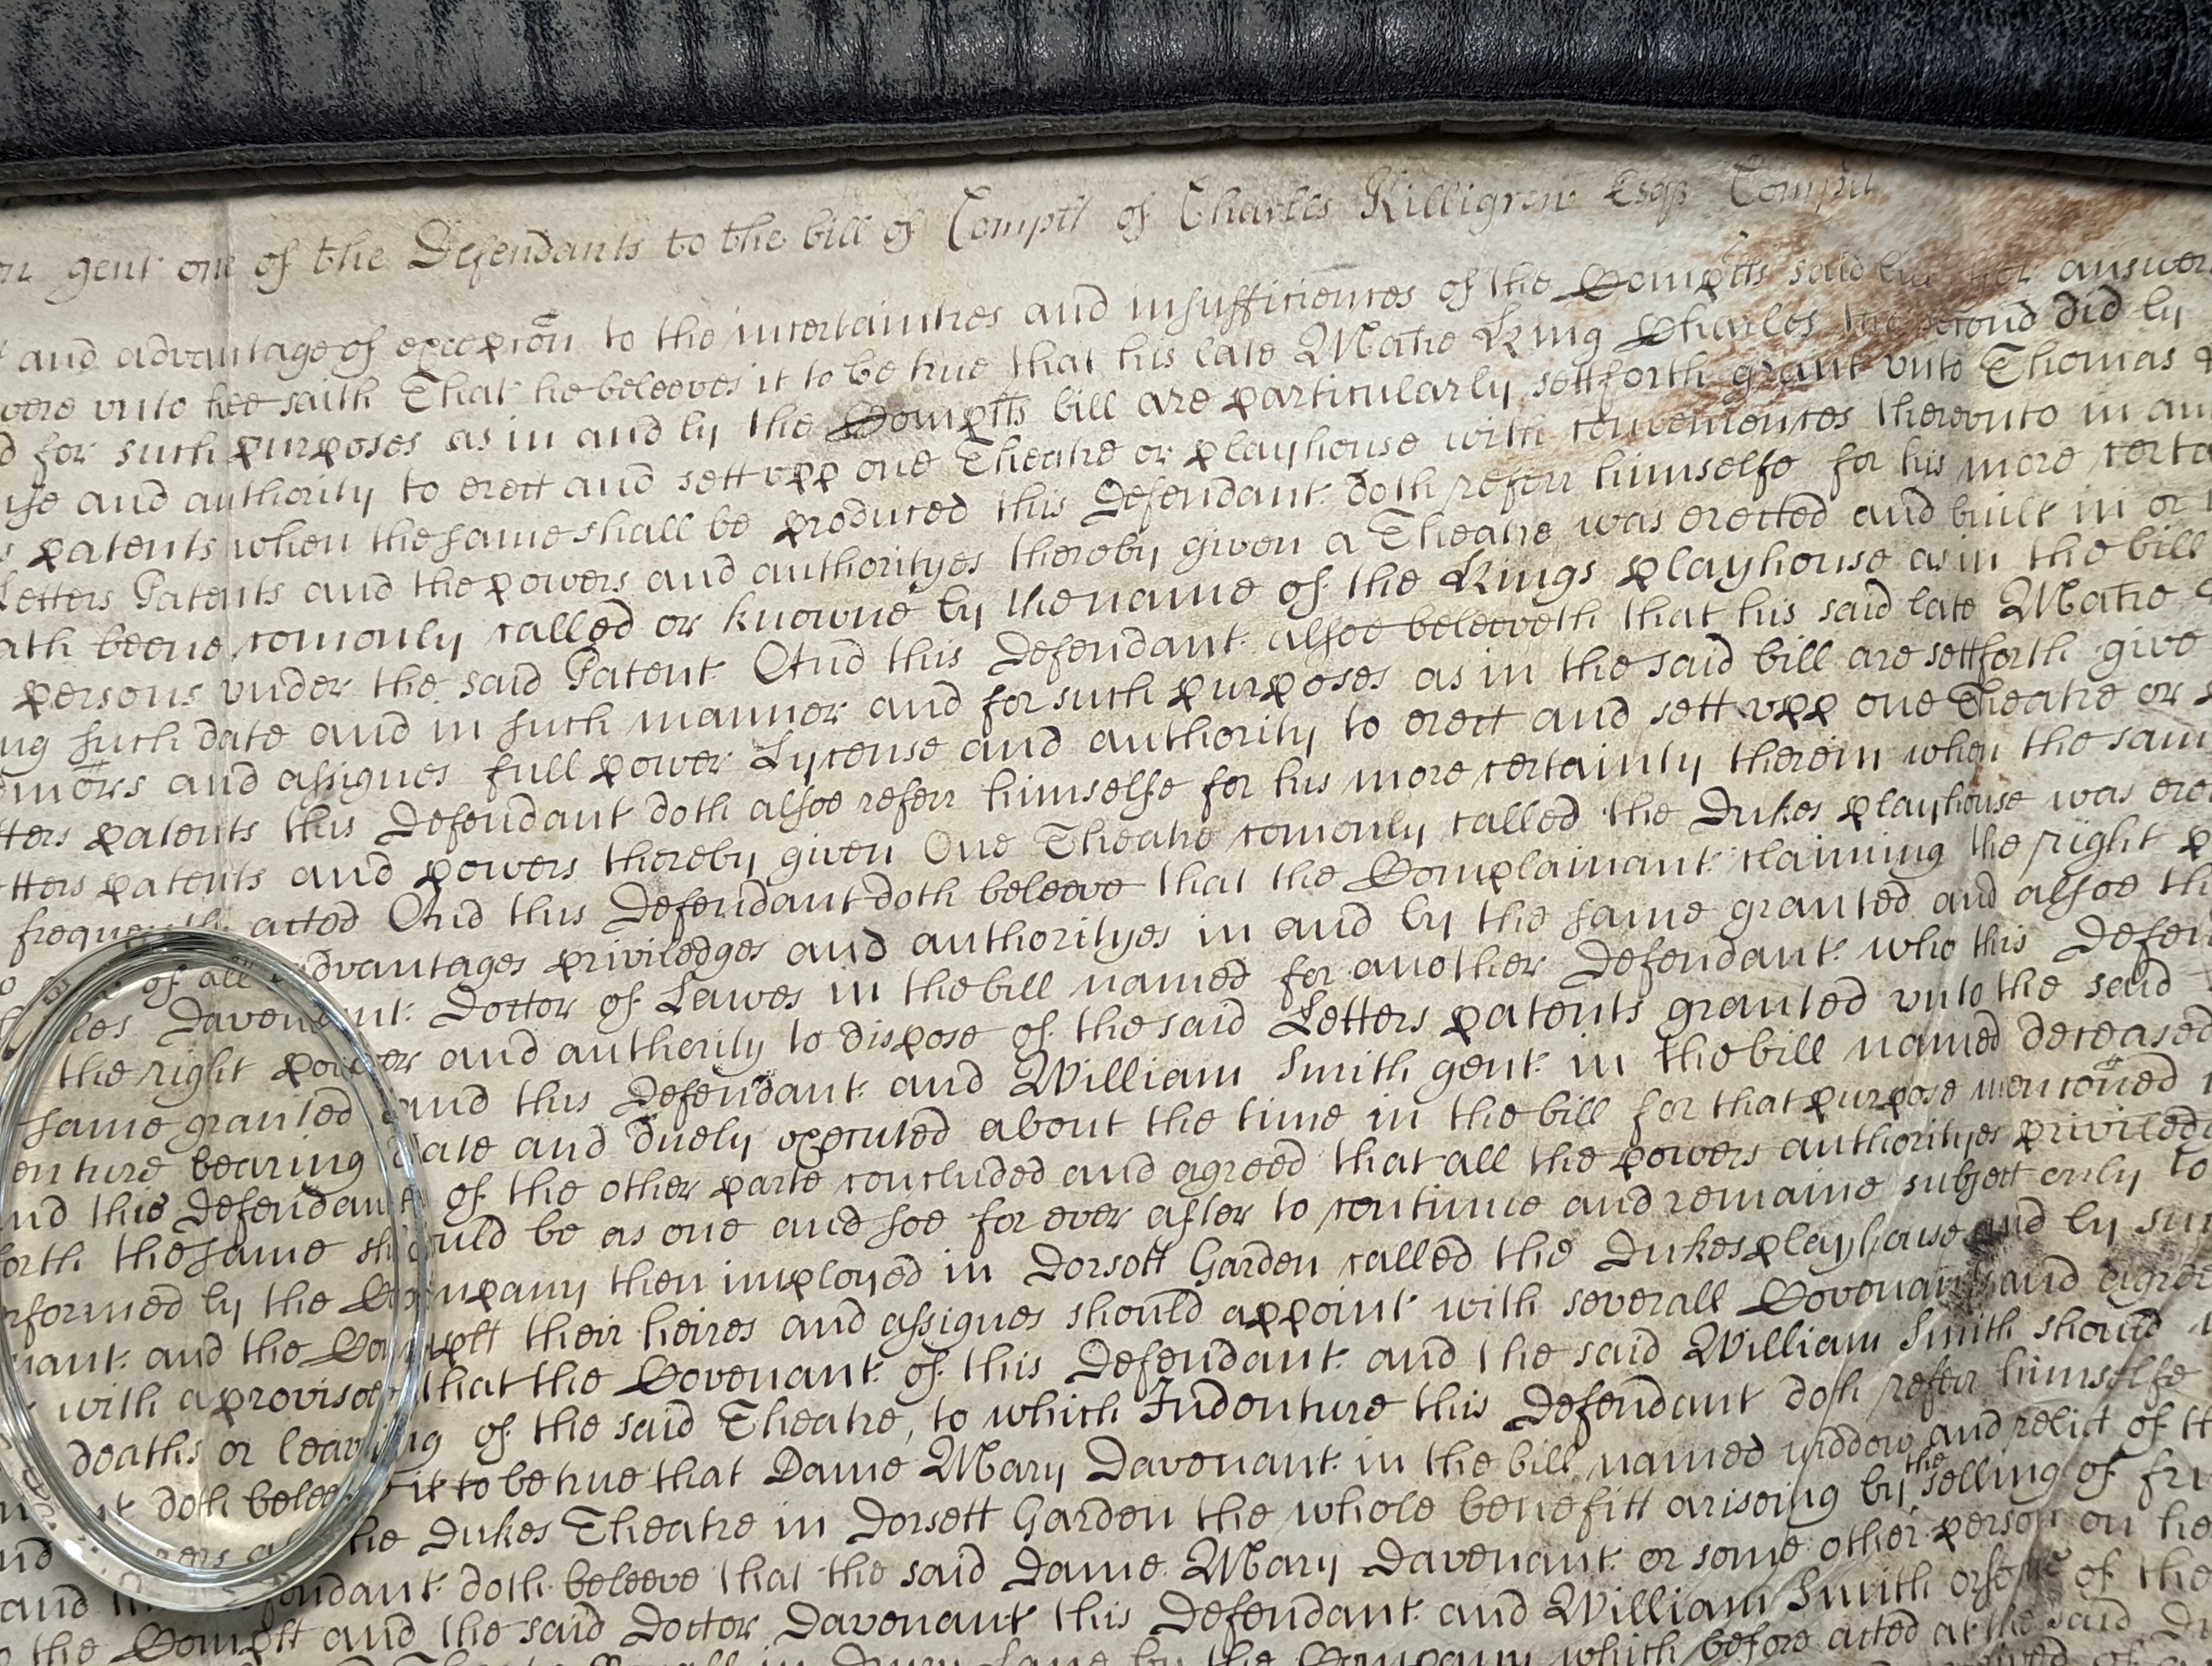 gent one of the Defendants to the bill of Complt of Charles Killigrew Esqr Complt
and advantage of exceptõn to the incertainties and insufficiences of the Complts said bill for answer
were unto hee saith That he beleeves it to be true that his late Matie King Charles the second did by
for such purposes as in and by the Complts bill are particularly settforth grant unto Thomas
and authority to erect and sett upp one Theatre or playhouse with conveniences thereunto in
patents when the same shall be produced this Defendant doth referr himselfe for his more certa
Letters Patents and the powers and authorityes thereby given a Theatre was erected and built in or
ath beene comonly called or knowne by the name of the Kings playhouse as in the bill
persons under the said Patent And this Defendant alsoe beleeveth that his said late Matie
ng such date and in such manner and for such purposes as in the said bill are settforth give
and assignes full power Lycense and authority to erect and sett upp one Theatre or
tters patents this Defendant doth alsoe referr himselfe for his more certainty therein when the sam
tters patents and powers thereby given One Theatre comonly called the Dukes playhouse was erec
frequently acted And this Defendant doth beleeve that the Complainant claiming the right
of all advantages priviledges and authorityes in and by the same granted and alsoe th
les Davenant Doctor of Lawes in the bill named for another Defendant who this Defen
the right power and authority to dispose of the said Letters patents granted unto the said
same granted and this Defendant and William Smith gent in the bill named deceased
enture bearing date and duely executed about the time in the bill for that purpose mencõned
nd this Defendant of the other parte concluded and agreed that all the powers authorityes priviled
orth the same should be as one and soe for ever after to continue and remaine subject only to
rformed by the Company then imployed in Dorsett Garden called the Dukes playhouse and by su
nant and the Complt their heires and assignes should appoint with severall Covenants and agree
with a provisoe that the Covenant of this Defendant and the said William Smith should
deaths or leaving of the said Theatre, to which Indenture this Defendant doth referr himselfe
nt doth beleeve it to be true that Dame Mary Davenant in the bill named widdow and relict of th
the Dukes Theatre in Dorsett Garden the whole benefitt ariseing by the selling of fru
and this Defendant doth beleeve that the said Dame Mary Davenant or some other person on he
the Complt and the said Doctor Davenant this Defendant and William Smith or some of the
in Drury Lane by the Company which before acted at the said Du